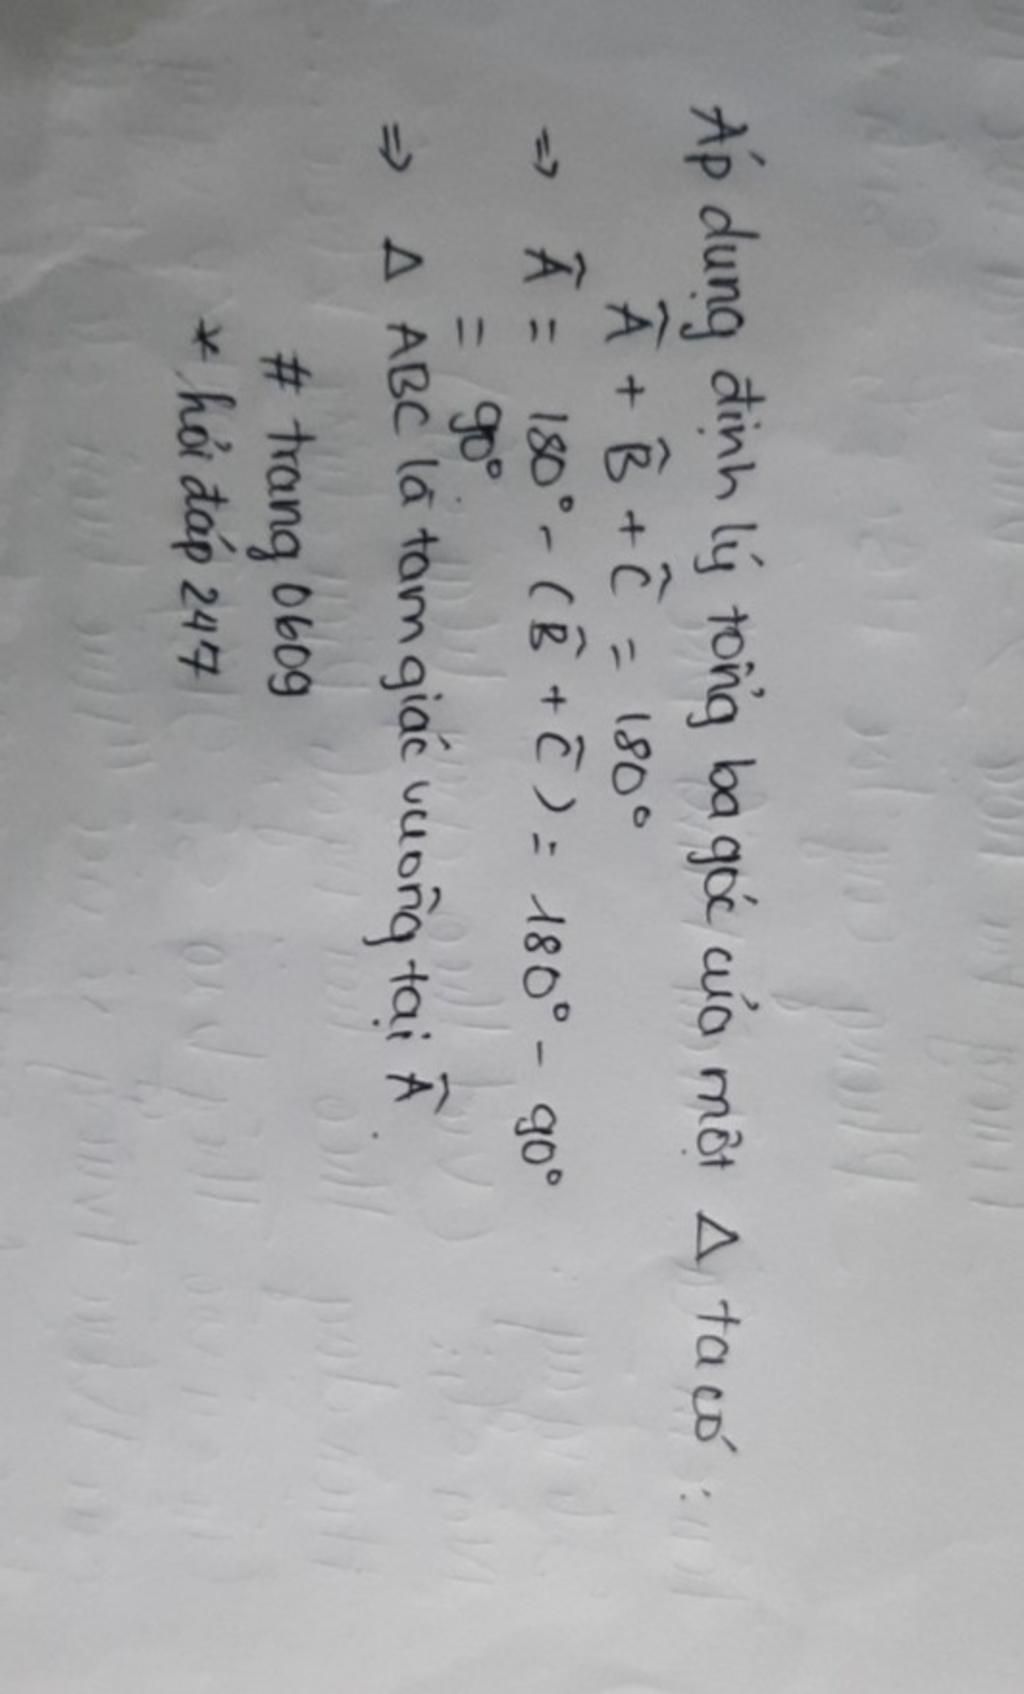 Áp dụng định lý tổng ba góc của một Δ ta có:
Â + B̂ + Ĉ = 180°
⇒ Â = 180° - (B̂ + Ĉ) = 180° - 90°
= 90°
⇒ Δ ABC là tam giác vuông tại Â.
# trang 0609
* hỏi đáp 247